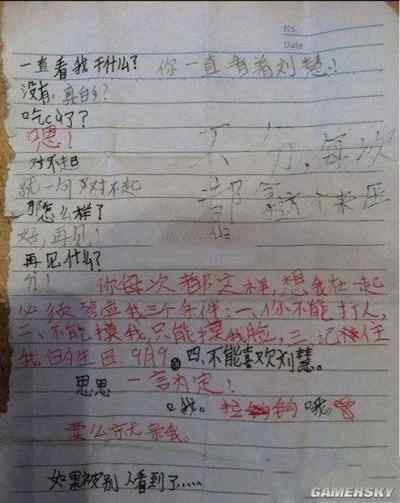 No.
Date
一直看我干什么？ 你一直看着刘慧！
没有。真的？
吃醋了？
嗯！
对不起
就一句对不起
那怎么样了
好，再见！
再见什么？
分！
不分，每次都
你每次都这样，想我在一起
必须答应我三个条件：一、你不能打人，
二、不能摸我，只能摸我脸，三、记住
我的生日、9月9 四、不能喜欢刘慧。
思思 一言为定！
如果被别人看到了.....
GAMERSKY